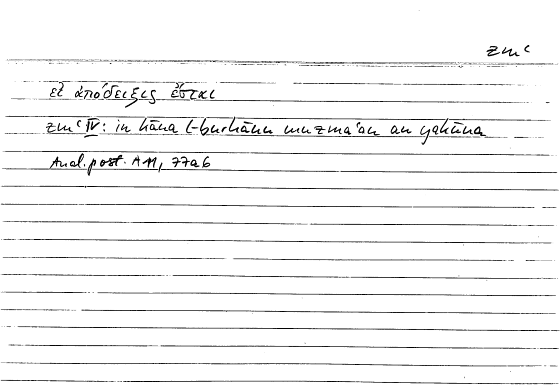 zmʿ
εἰ ἀπόδειξις ἔσται
zmʿ IV: in kāna l-burhānu muzmaʿan an yakūna
Anal. post. A 11, 77a6